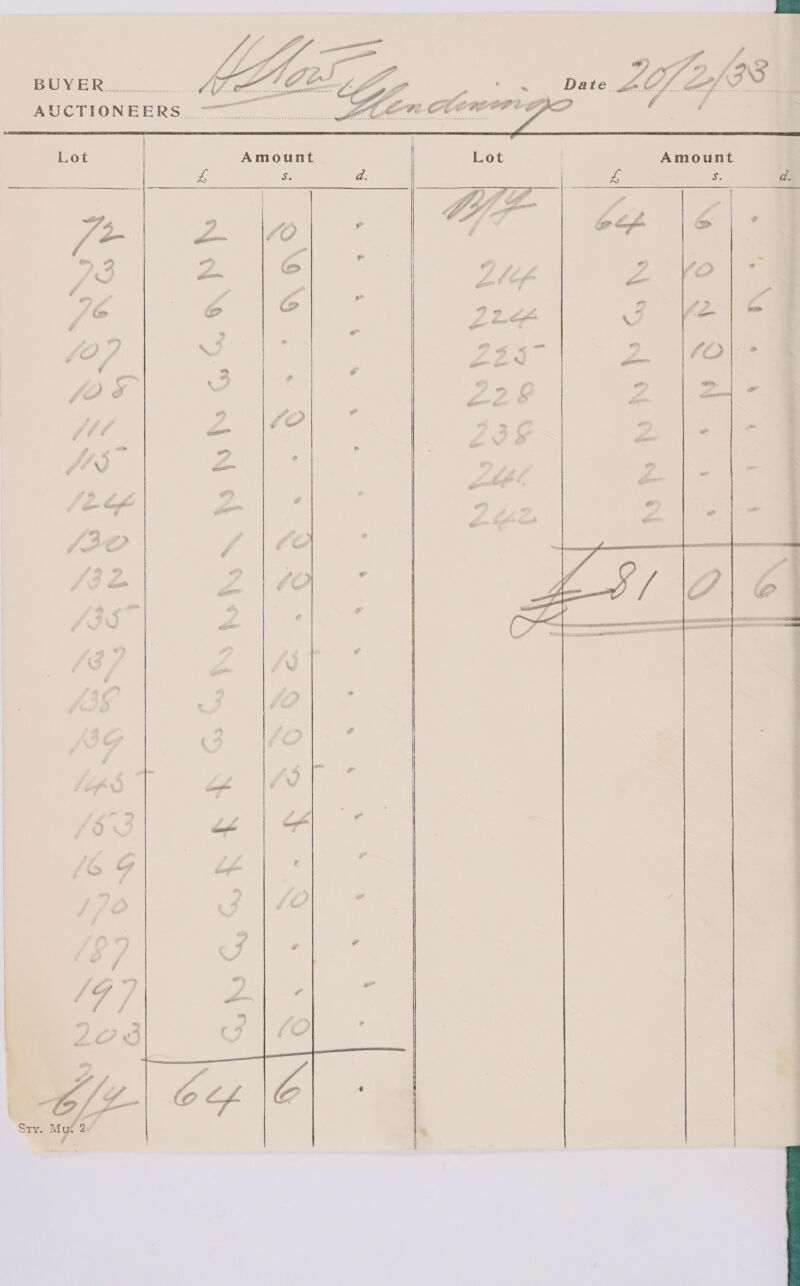 BUYER Date 20/2/33
AUCTIONEERS Glendinings
Lot Amount Lot Amount
£ s. d. £ s. d.
72 2 10 - B/F 64 6 -
73 2 6 - 214 2 10 -
76 6 6 - 224 3 12 6
107 3 - - 225 2 10 -
108 3 - - 228 2 2 -
111 2 10 - 238 2 - -
115 2 - - 241 2 - -
124 2 - - 242 2 - -
130 1 10 -
132 2 10 - £81 0 6
135 2 - -
137 2 15 -
138 3 10 -
139 3 10 -
145 4 15 -
153 4 4 -
169 4 - -
170 3 10 -
187 3 - -
197 2 - -
203 3 10 -
C/F 64 6 -
STY. My. 2